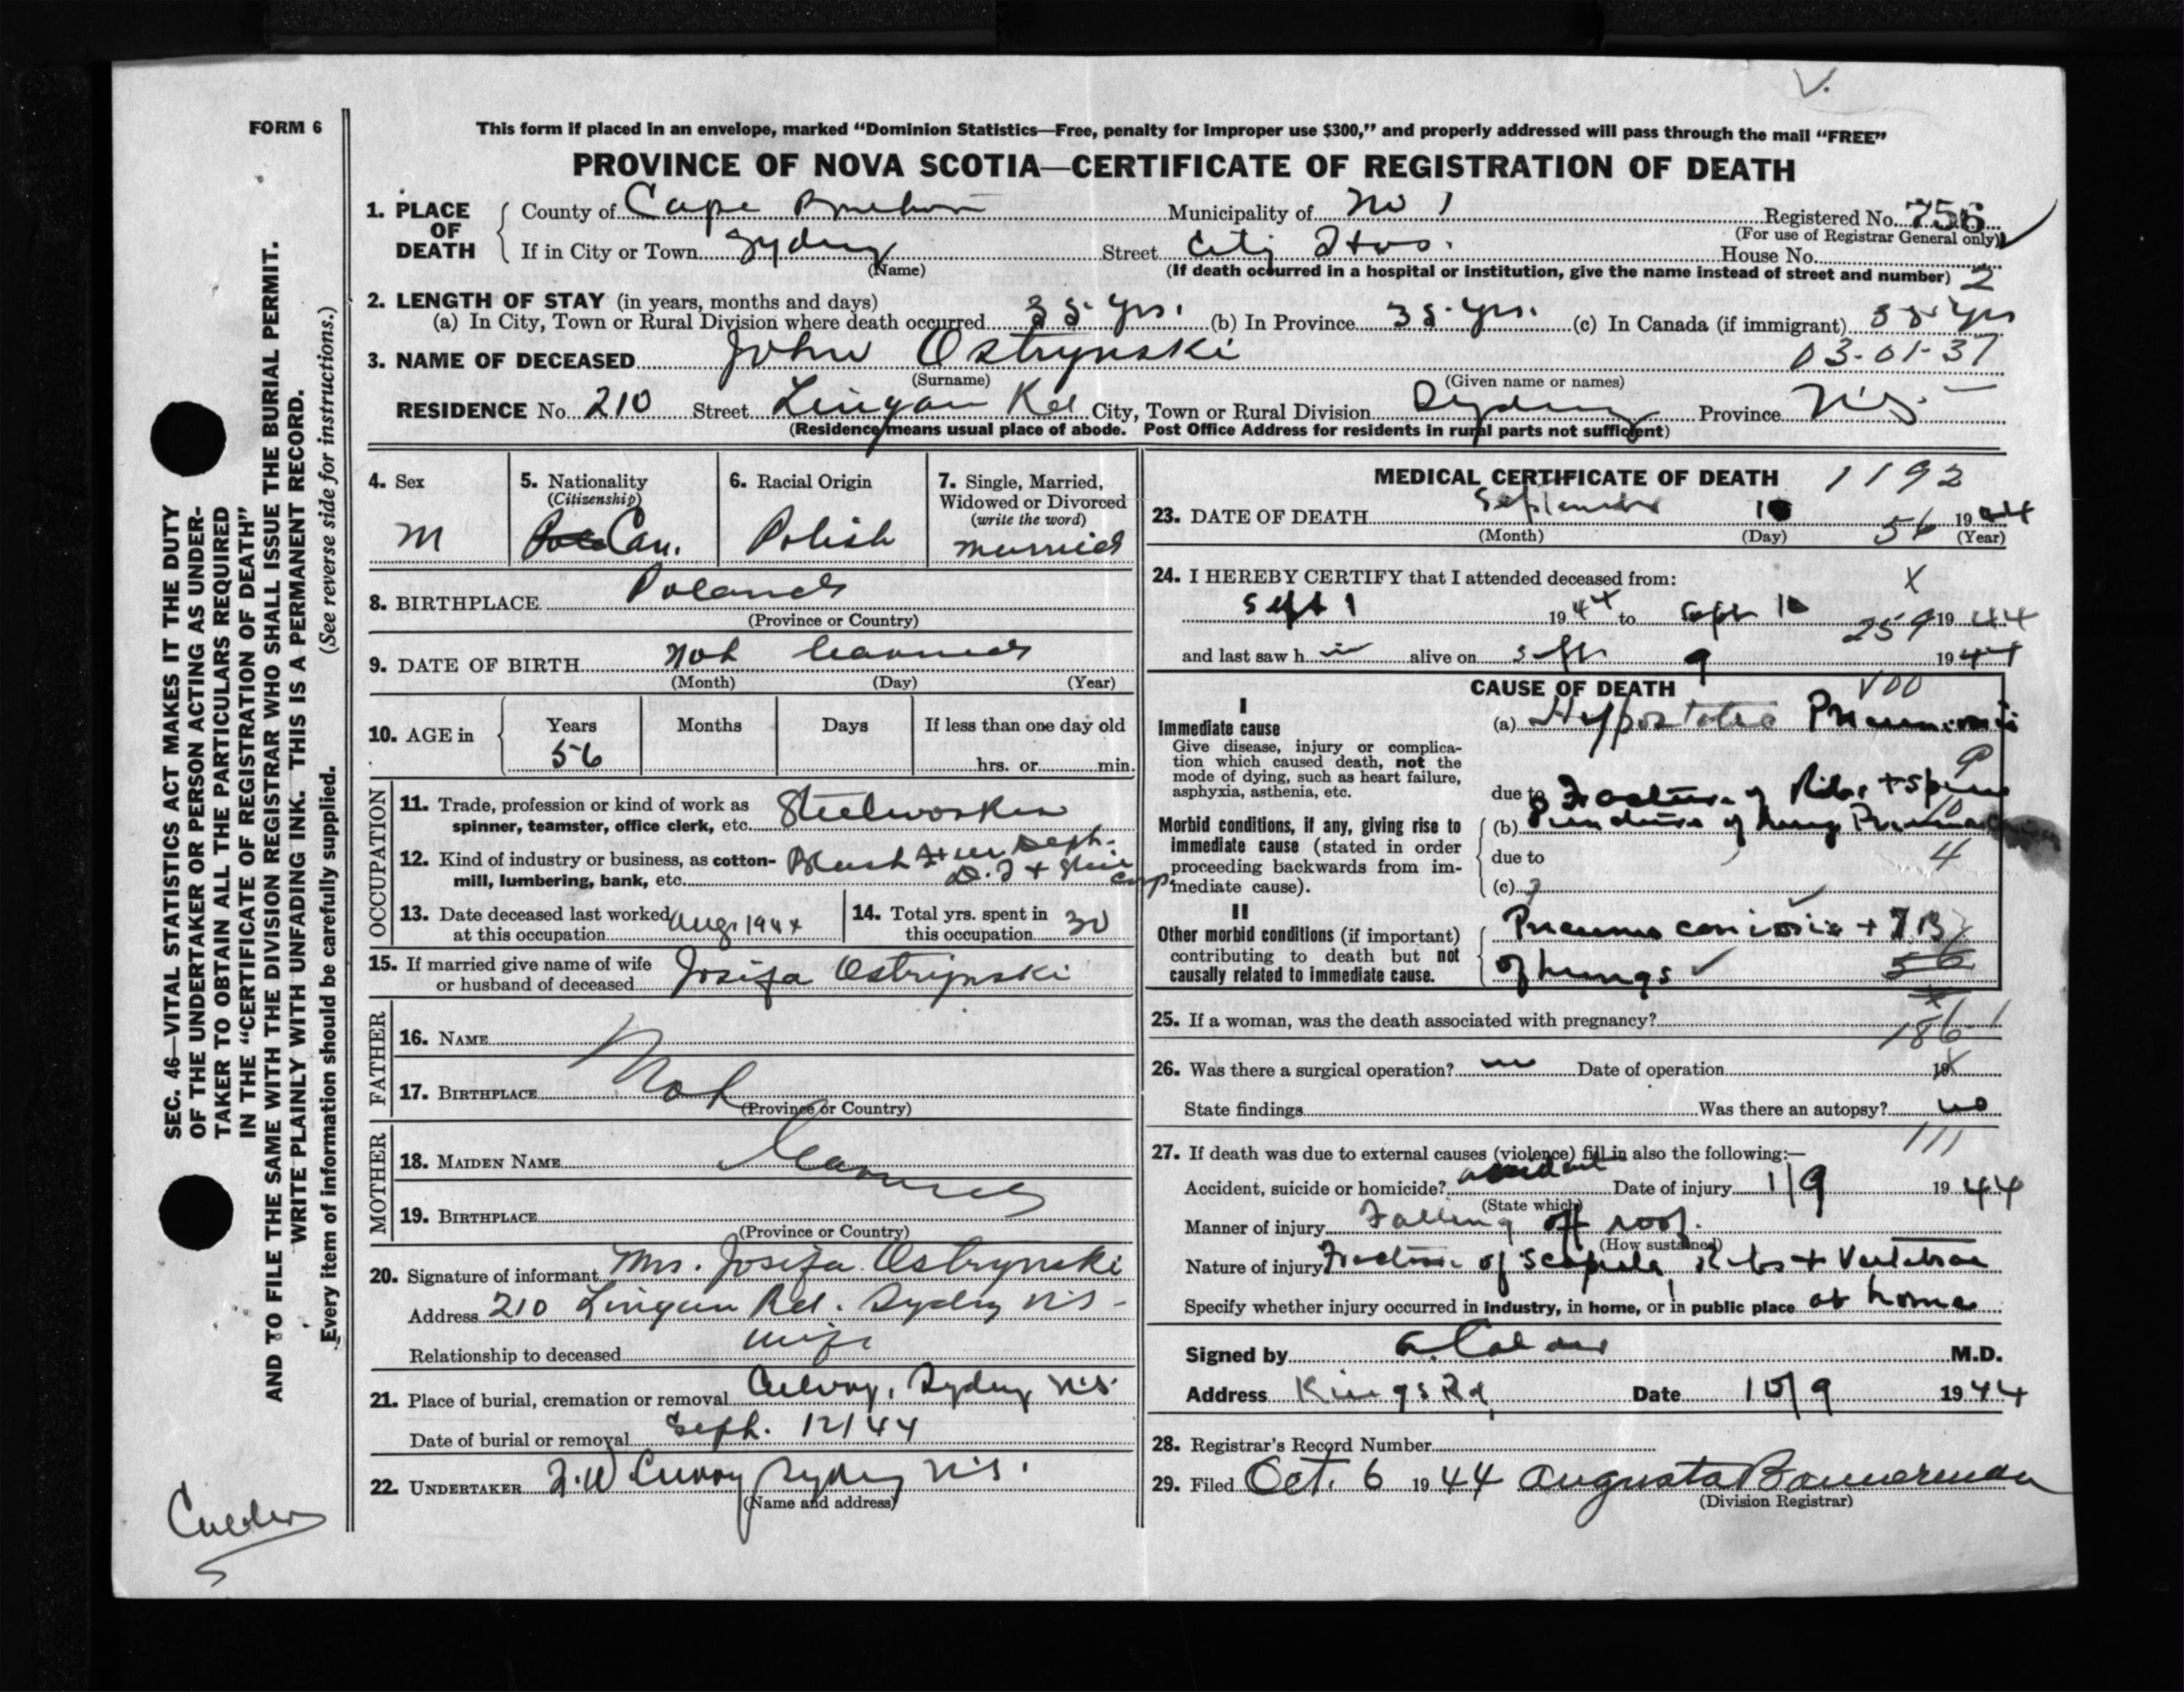 V.
FORM 6
This form if placed in an envelope, marked “Dominion Statistics—Free, penalty for improper use $300,” and properly addressed will pass through the mail “FREE”
PROVINCE OF NOVA SCOTIA—CERTIFICATE OF REGISTRATION OF DEATH
1. PLACE OF DEATH
County of Cape Breton Municipality of No 1 Registered No. 756
(For use of Registrar General only)
If in City or Town Sydney Street City Hos. House No.
(Name) (If death occurred in a hospital or institution, give the name instead of street and number) 2
2. LENGTH OF STAY (in years, months and days)
(a) In City, Town or Rural Division where death occurred 35 yrs. (b) In Province 35 yrs. (c) In Canada (if immigrant) 35 yrs
3. NAME OF DECEASED John Ostrynski 03-01-37
(Surname) (Given name or names)
RESIDENCE No. 210 Street Lingan Rd City, Town or Rural Division Sydney Province N.S.
(Residence means usual place of abode. Post Office Address for residents in rural parts not sufficient)
4. Sex
M
5. Nationality
(Citizenship)
Can.
6. Racial Origin
Polish
7. Single, Married,
Widowed or Divorced
(write the word)
married
8. BIRTHPLACE Poland
(Province or Country)
9. DATE OF BIRTH Not learned
(Month) (Day) (Year)
10. AGE in
Years Months Days If less than one day old
56 hrs. or min.
OCCUPATION
11. Trade, profession or kind of work as
spinner, teamster, office clerk, etc. Steelworker
12. Kind of industry or business, as cotton-
mill, lumbering, bank, etc. Blast Fur Dept.
D. I + Steel Corp
13. Date deceased last worked
at this occupation Aug. 1944
14. Total yrs. spent in
this occupation 30
15. If married give name of wife
or husband of deceased Josifa Ostrynski
FATHER
16. NAME
17. BIRTHPLACE Not
(Province or Country)
MOTHER
18. MAIDEN NAME learned
19. BIRTHPLACE
(Province or Country)
20. Signature of informant Mrs. Josifa Ostrynski
Address 210 Lingan Rd. Sydney N.S.
Relationship to deceased wife
21. Place of burial, cremation or removal Curvoy, Sydney N.S.
Date of burial or removal Sept. 12/44
22. UNDERTAKER F.W. Curvoy Sydney N.S.
(Name and address)
MEDICAL CERTIFICATE OF DEATH 1192
23. DATE OF DEATH September 10 1944
(Month) (Day) 56 (Year)
24. I HEREBY CERTIFY that I attended deceased from: X
Sept 1 1944 to Sept 10 1944
259
and last saw h im alive on Sept 9 1944
CAUSE OF DEATH
I
Immediate cause
Give disease, injury or complica-
tion which caused death, not the
mode of dying, such as heart failure,
asphyxia, asthenia, etc.
(a) Hypostatic Pneumonia
due to Fracture of Ribs + Spine
Morbid conditions, if any, giving rise to
immediate cause (stated in order
proceeding backwards from im-
mediate cause).
(b) Puncture of lung
due to 4
(c)
II
Other morbid conditions (if important)
contributing to death but not
causally related to immediate cause.
Pneumoconiosis + T.B
of lungs
56
25. If a woman, was the death associated with pregnancy?
186
26. Was there a surgical operation? no Date of operation 19
State findings Was there an autopsy? no
111
27. If death was due to external causes (violence) fill in also the following:—
Accident, suicide or homicide? accident Date of injury 1/9 1944
(State which)
Manner of injury Falling off roof.
(How sustained)
Nature of injury Fracture of Scapula, Ribs + Vertebrae
Specify whether injury occurred in industry, in home, or in public place at home
Signed by A. Calder M.D.
Address Kings Rd, Date 10/9 1944
28. Registrar's Record Number
29. Filed Oct. 6 1944 Augusta Bannerman
(Division Registrar)
SEC. 46—VITAL STATISTICS ACT MAKES IT THE DUTY
OF THE UNDERTAKER OR PERSON ACTING AS UNDER-
TAKER TO OBTAIN ALL THE PARTICULARS REQUIRED
IN THE “CERTIFICATE OF REGISTRATION OF DEATH”
AND TO FILE THE SAME WITH THE DIVISION REGISTRAR WHO SHALL ISSUE THE BURIAL PERMIT.
WRITE PLAINLY WITH UNFADING INK. THIS IS A PERMANENT RECORD.
Every item of information should be carefully supplied. (See reverse side for instructions.)
Calder